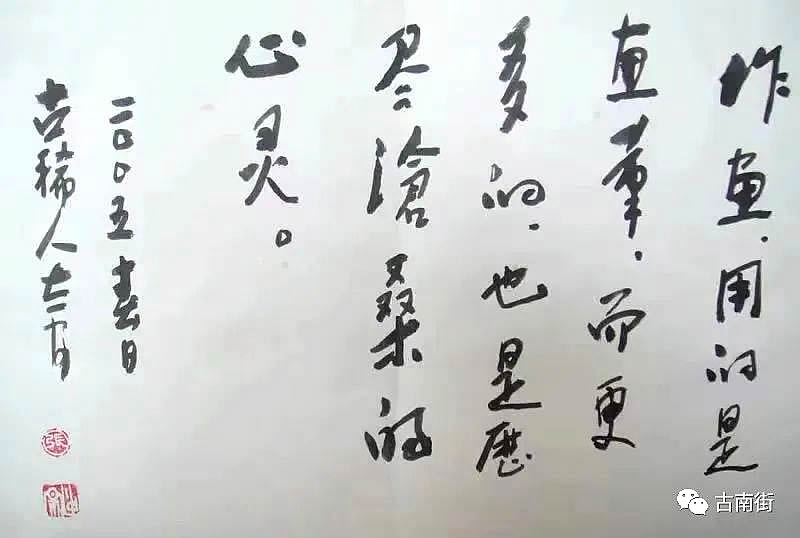 作画，用的是
画筆，而更
多的，也是歷
尽滄桑的
心灵。
二〇〇五春日
古稀人
張
古南街